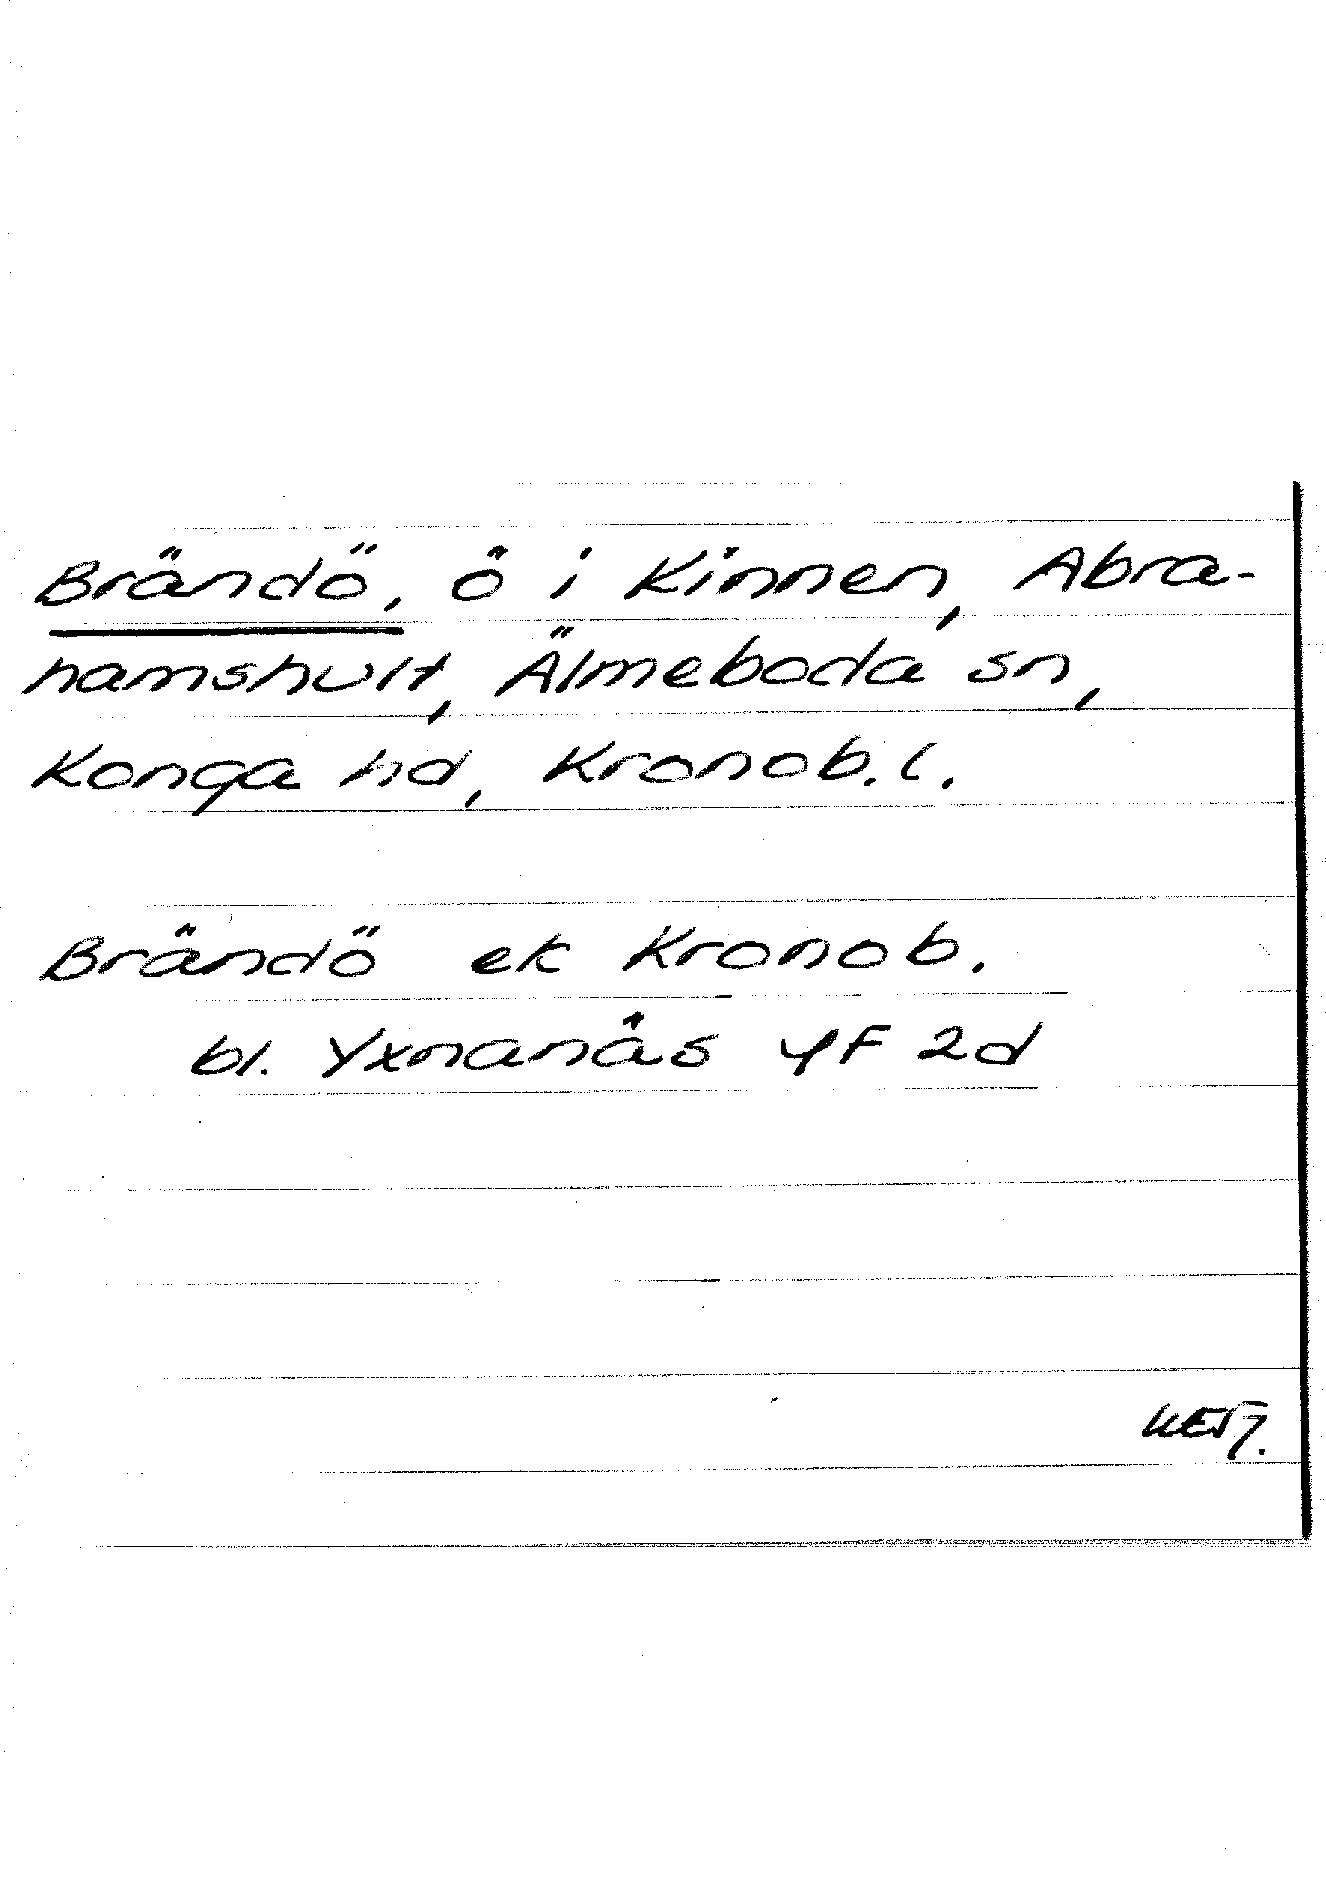 Brändö, ö i Kinnen, Abra-
hamshult, Älmeboda sn,
Konga hd, Kronob. l.
Brändö ek Kronob.
bl. Yxnanås 4F 2d